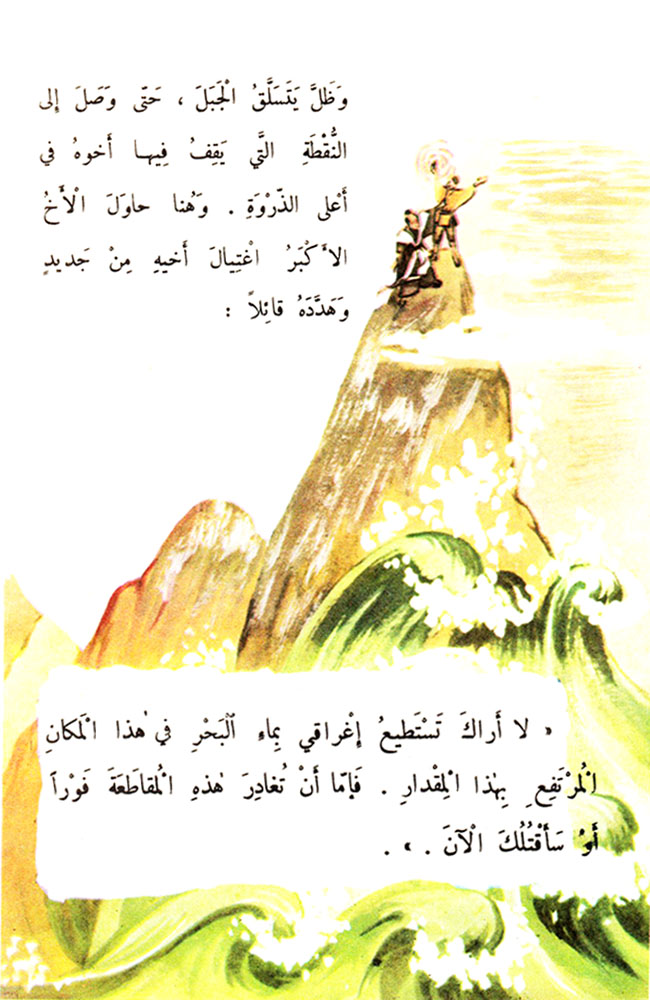 وَظَلَّ يَتَسَلَّقُ الْجَبَلَ ، حَتّى وَصَلَ إِلى
النُّقْطَةِ الَّتي يَقِفُ فِيها أَخوهُ في
أَعْلى الذّرْوَةِ . وَهُنا حاوَلَ الْأَخُ
الأَكْبَرُ اغْتِيالَ أَخيهِ مِنْ جَديدٍ
وَهَدَّدَهُ قائِلاً :
« لا أَراكَ تَسْتَطيعُ إِغْراقي بِماءِ ٱلْبَحْرِ في هٰذا الْمَكانِ
الْمُرْتَفِعِ بِهٰذا الْمِقْدارِ . فَإِمّا أَنْ تُغادِرَ هٰذِهِ الْمُقاطَعَةَ فَوْراً
أَوْ سَأَقْتُلُكَ الْآنَ . » .